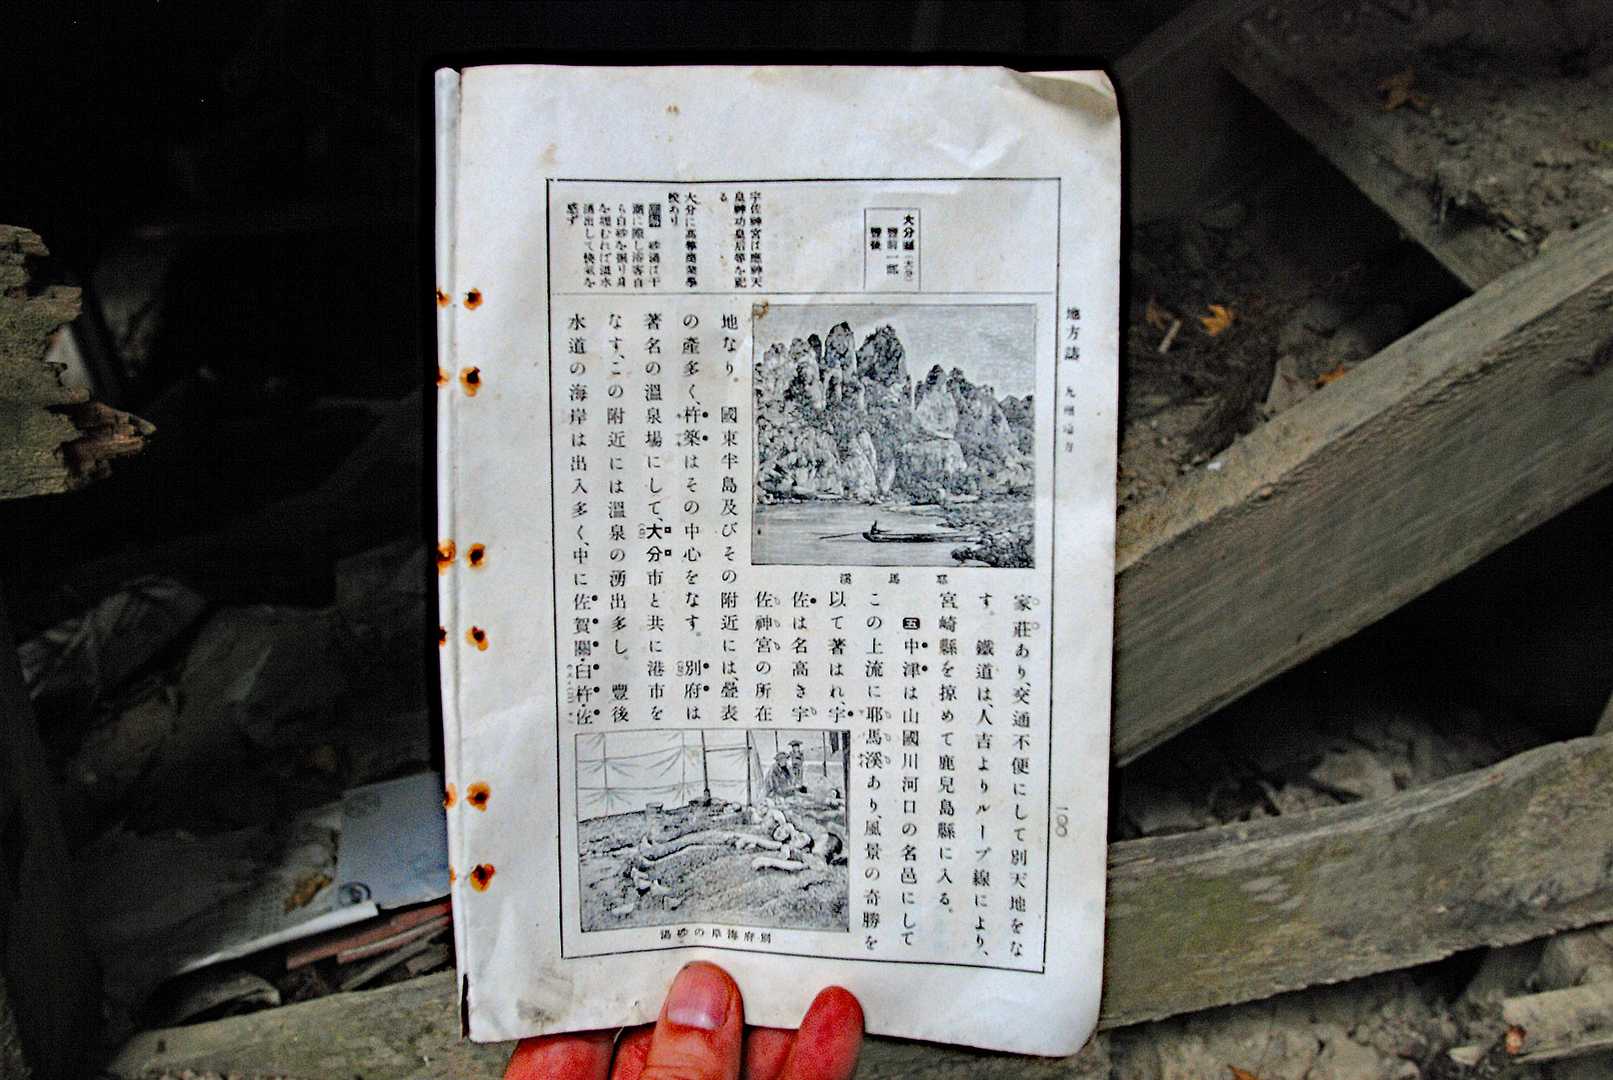 地方誌 九州地方
一〇〇
大分縣(大分)
豐前一部
豐後
宇佐神宮は應神天
皇神功皇后等を祀
る
大分に高等商業學
校あり
砂湯は干
潮に際し浴客自
ら白砂を掘り身
を埋むれば温水
湧出して快氣を
感ず
耶馬溪
家莊あり、交通不便にして別天地をな
す。 鐵道は、人吉よりループ線により、
宮崎縣を掠めて鹿兒島縣に入る。
五 中津は山國川河口の名邑にして
この上流に耶馬溪あり、風景の奇勝を
以て著はれ、宇
佐は名高き宇
佐神宮の所在
地なり。 國東半島及びその附近には、疊表
の產多く、杵築はその中心をなす。 別府は
著名の溫泉場にして、大分市と共に港市を
なす、この附近には溫泉の湧出多し。 豐後
水道の海岸は出入多く、中に佐賀關・臼杵・佐
別府海岸の砂湯